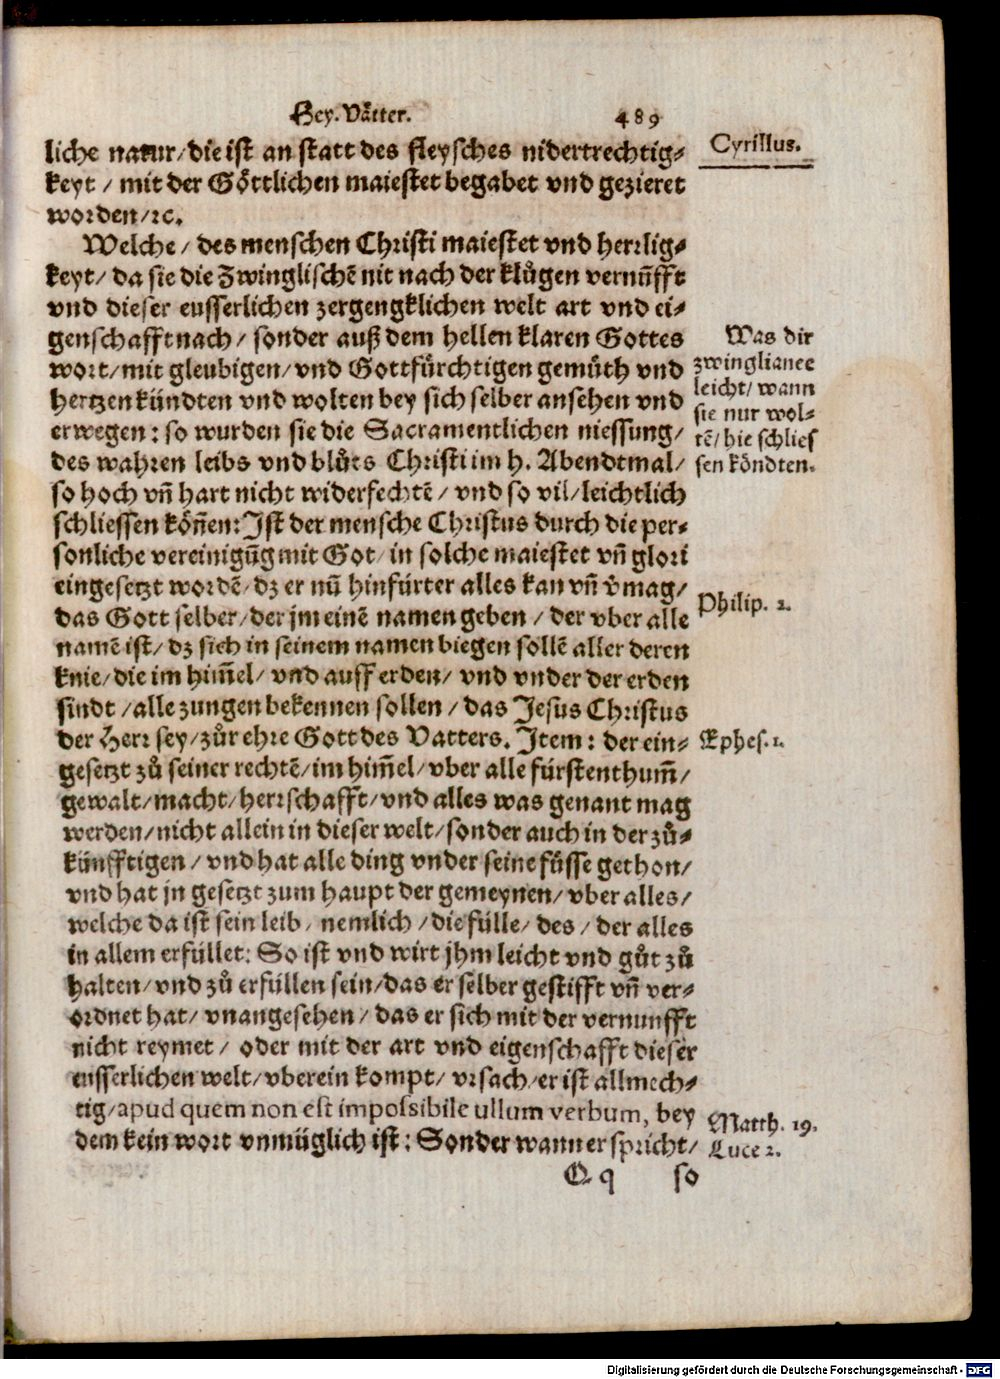 Hey. Vätter. 489
liche natur/die ist an statt des fleysches nidertrechtig-
keyt / mit der Göttlichen maiestet begabet vnd gezieret
worden/ꝛc.
Cyrillus.
Welche / des menschen Christi maiestet vnd herrlig-
keyt/ da sie die Zwinglischē nit nach der klůgen vernũfft
vnd dieser eusserlichen zergengklichen welt art vnd ei-
genschafft nach / sonder auß dem hellen klaren Gottes
wort/ mit gleubigen/ vnd Gottfürchtigen gemüth vnd
hertzen kündten vnd wolten bey sich selber ansehen vnd
erwegen: so wurden sie die Sacramentlichen niessung/
des wahren leibs vnd blůts Christi im h. Abendtmal/
so hoch vñ hart nicht widerfechtē / vnd so vil/ leichtlich
schliessen köñen: Ist der mensche Christus durch die per-
sonliche vereinigũg mit Got/ in solche maiestet vñ glori
eingesetzt wordē/ dz er nũ hinfürter alles kan vñ v̂mag/
das Gott selber/ der jm einē namen geben / der vber alle
namē ist/ dz sich in seinem namen biegen sollē aller deren
knie/ die im him̃el/ vnd auff erden/ vnd vnder der erden
sindt / alle zungen bekennen sollen / das Jesus Christus
der Herr sey/ zůr ehre Gott des Vatters. Item: der ein-
gesetzt zů seiner rechtē/ im him̃el/ vber alle fürstenthum̃/
gewalt/ macht/ herrschafft/ vnd alles was genant mag
werden/ nicht allein in dieser welt/ sonder auch in der zů-
künfftigen / vnd hat alle ding vnder seine füsse gethon/
vnd hat jn gesetzt zum haupt der gemeynen/ vber alles/
welche da ist sein leib/ nemlich / die fülle/ des / der alles
in allem erfüllet: So ist vnd wirt jhm leicht vnd gůt zů
halten/ vnd zů erfüllen sein/ das er selber gestifft vñ ver-
ordnet hat/ vnangesehen / das er sich mit der vernunfft
nicht reymet / oder mit der art vnd eigenschafft dieser
eusserlichen welt/ vberein kompt/ vrsach/ er ist allmech-
tig/ apud quem non est impossibile ullum verbum, bey
dem kein wort vnmüglich ist: Sonder wann er spricht/
Q q so
Was dir
zwinglianer
leicht/ wann
sie nur wol-
tē/ hie schlies
sen köndten.
Philip. 2.
Ephes. 1.
Matth. 19.
Luce 2.
Digitalisierung gefördert durch die Deutsche Forschungsgemeinschaft - DFG